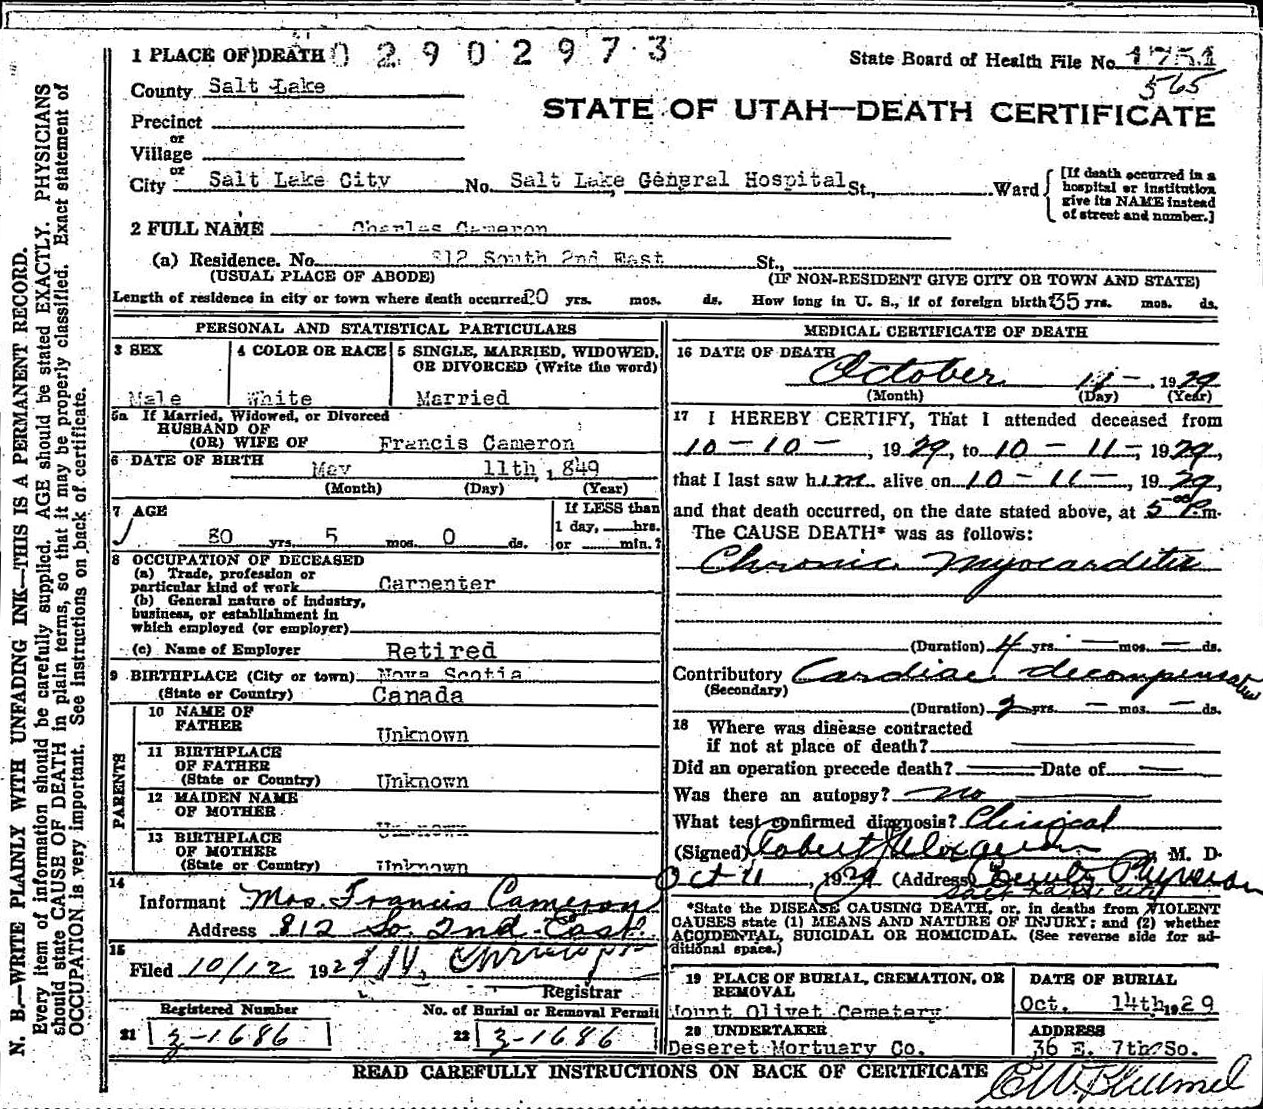 1 PLACE OF DEATH 02902973
State Board of Health File No. 1751
565
County Salt Lake
STATE OF UTAH—DEATH CERTIFICATE
Precinct
or
Village
or
City Salt Lake City No. Salt Lake General Hospital St., Ward
[If death occurred in a hospital or institution give its NAME instead of street and number.]
2 FULL NAME Charles Cameron
(a) Residence. No. 812 South 2nd East St.,
(USUAL PLACE OF ABODE) (IF NON-RESIDENT GIVE CITY OR TOWN AND STATE)
Length of residence in city or town where death occurred 20 yrs. mos. ds. How long in U. S., if of foreign birth 35 yrs. mos. ds.
PERSONAL AND STATISTICAL PARTICULARS
3 SEX
Male
4 COLOR OR RACE
White
5 SINGLE, MARRIED, WIDOWED, OR DIVORCED (Write the word)
Married
5a If Married, Widowed, or Divorced
HUSBAND OF
(OR) WIFE OF Francis Cameron
6 DATE OF BIRTH
May 11th, 1849
(Month) (Day) (Year)
7 AGE
80 yrs. 5 mos. 0 ds.
If LESS than
1 day, hrs.
or min.?
8 OCCUPATION OF DECEASED
(a) Trade, profession or
particular kind of work Carpenter
(b) General nature of industry,
business, or establishment in
which employed (or employer)
(c) Name of Employer Retired
9 BIRTHPLACE (City or town) Nova Scotia
(State or Country) Canada
PARENTS
10 NAME OF
FATHER Unknown
11 BIRTHPLACE
OF FATHER
(State or Country) Unknown
12 MAIDEN NAME
OF MOTHER Unknown
13 BIRTHPLACE
OF MOTHER
(State or Country) Unknown
14
Informant Mrs. Francis Cameron
Address 812 So. 2nd East
15
Filed 10/12 1929
Registrar
Registered Number
21 3-1686
No. of Burial or Removal Permit
22 3-1686
MEDICAL CERTIFICATE OF DEATH
16 DATE OF DEATH
October 11-, 1929
(Month) (Day) (Year)
17 I HEREBY CERTIFY, That I attended deceased from
10-10-, 1929, to 10-11-, 1929,
that I last saw him alive on 10-11-, 1929,
and that death occurred, on the date stated above, at 5 00 P.m.
The CAUSE DEATH* was as follows:
Chronic Myocarditis
(Duration) 4 yrs. — mos. — ds.
Contributory Cardiac decompensation
(Secondary)
(Duration) 2 yrs. — mos. — ds.
18 Where was disease contracted
if not at place of death?
Did an operation precede death? Date of
Was there an autopsy? no
What test confirmed diagnosis? Clinical
(Signed) Robert M. D.
Oct 11, 1929 (Address)
*State the DISEASE CAUSING DEATH, or, in deaths from VIOLENT
CAUSES state (1) MEANS AND NATURE OF INJURY; and (2) whether
ACCIDENTAL, SUICIDAL OR HOMICIDAL. (See reverse side for ad-
ditional space.)
19 PLACE OF BURIAL, CREMATION, OR
REMOVAL
Mount Olivet Cemetery
DATE OF BURIAL
Oct. 14th 1929
20 UNDERTAKER
Deseret Mortuary Co.
ADDRESS
36 E. 7th So.
READ CAREFULLY INSTRUCTIONS ON BACK OF CERTIFICATE
N. B.—WRITE PLAINLY WITH UNFADING INK—THIS IS A PERMANENT RECORD.
Every item of information should be carefully supplied. AGE should be stated EXACTLY. PHYSICIANS
should state CAUSE OF DEATH in plain terms, so that it may be properly classified. Exact statement of
OCCUPATION is very important. See instructions on back of certificate.